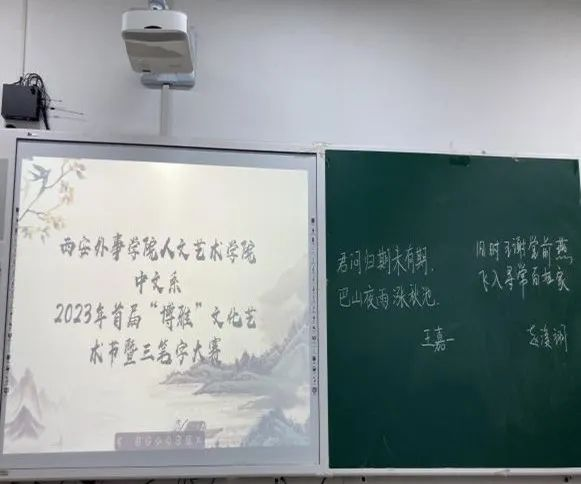 西安外事学院人文艺术学院
中文系
2023年首届“博雅”文化艺
术节暨三笔字大赛
君问归期未有期，
巴山夜雨涨秋池.
王嘉一
旧时王谢堂前燕
飞入寻常百姓家